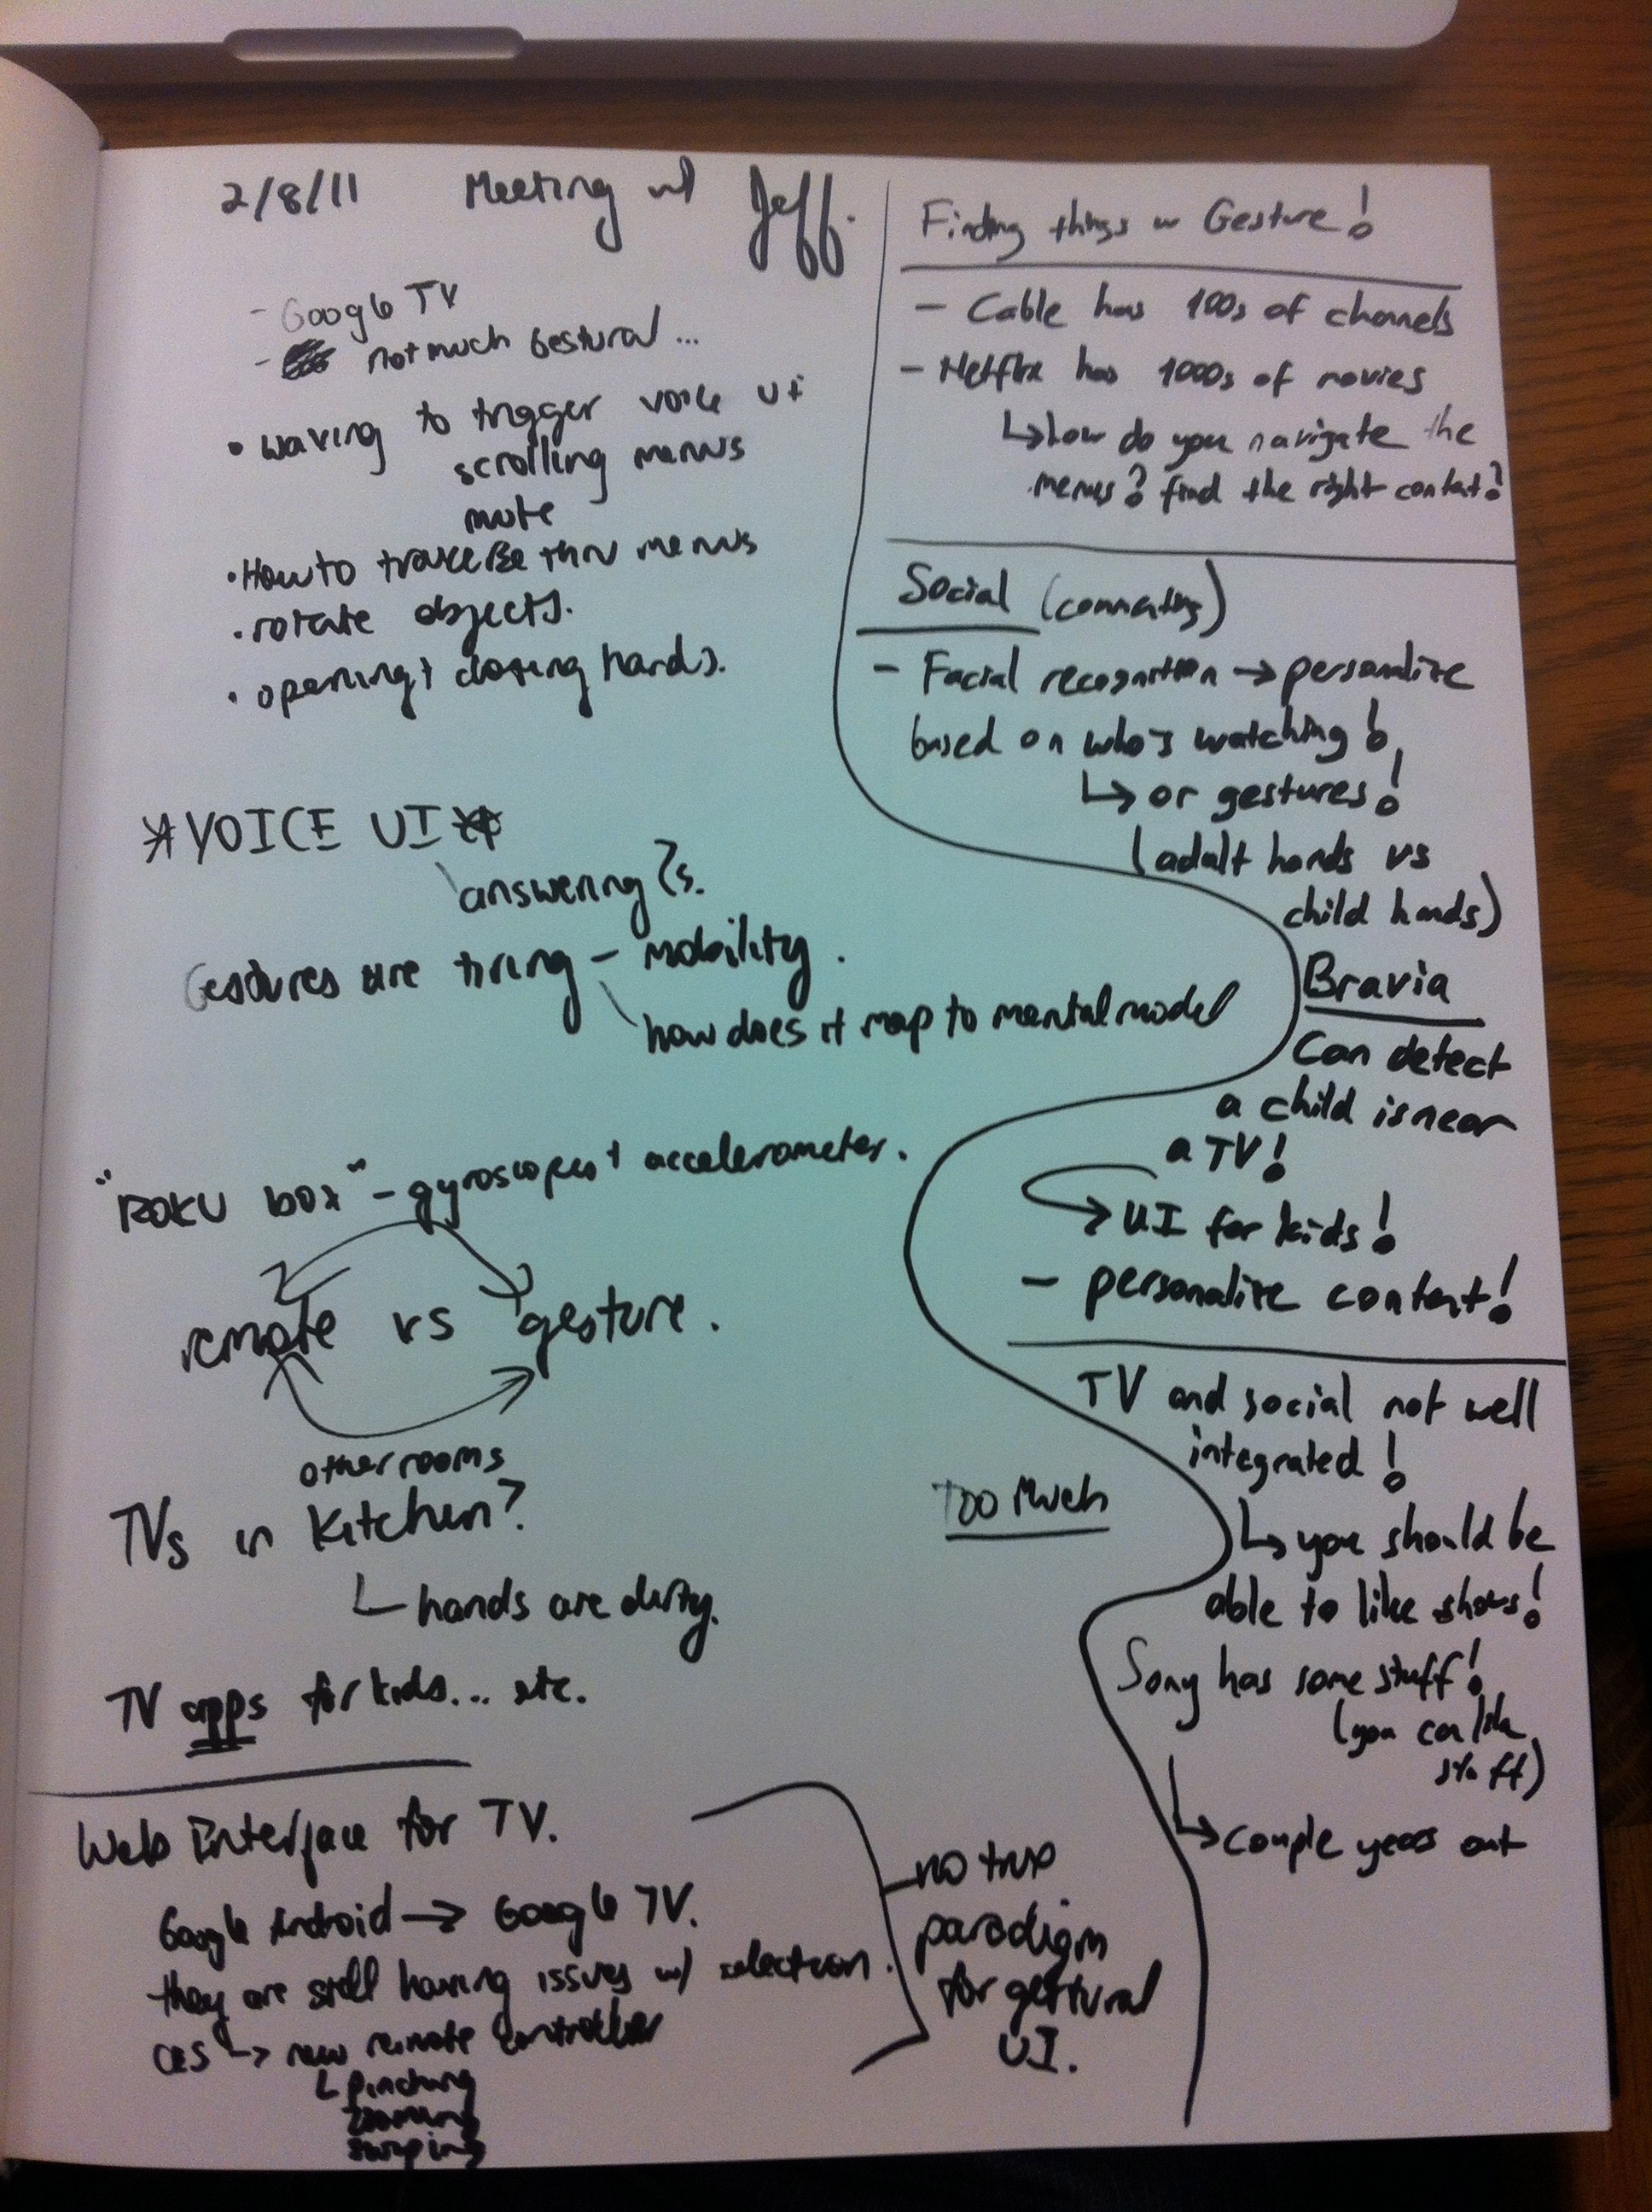 2/8/11 Meeting w/ Jeff.
- Google TV
- not much Gestural...
• waving to trigger voice UI
scrolling menus
mute
• How to traverse thru menus
• rotate objects.
• opening + closing hands.
*VOICE UI*
answering ?s.
Gestures are tiring - mobility.
how does it map to mental model
"ROKU box" - gyroscopes + accelerometer.
remote vs gesture.
other rooms
TVs in Kitchen?
hands are dirty.
TV apps for kids... etc.
Web Interface for TV.
Google Android → Google TV.
they are still having issues w/ selection.
CES → new remote controller
pinching
zooming
swiping
no true
paradigm
for gestural
UI.
Too Much
Finding things w Gesture!
- Cable has 100s of channels
- Netflix has 1000s of movies
↳ how do you navigate the
menus? find the right content?
Social (connecting)
- Facial recognition → personalize
based on who's watching!
↳ or gestures!
(adult hands vs
child hands)
Bravia
Can detect
a child is near
a TV!
→ UI for kids!
- personalize content!
TV and social not well
integrated!
↳ you should be
able to like shows!
Sony has some stuff!
(you can like
stuff)
↳ couple years out